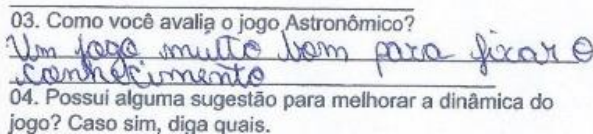 03. Como você avalia o jogo Astronômico?
Um jogo muito bom para fixar o
conhecimento
04. Possui alguma sugestão para melhorar a dinâmica do
jogo? Caso sim, diga quais.